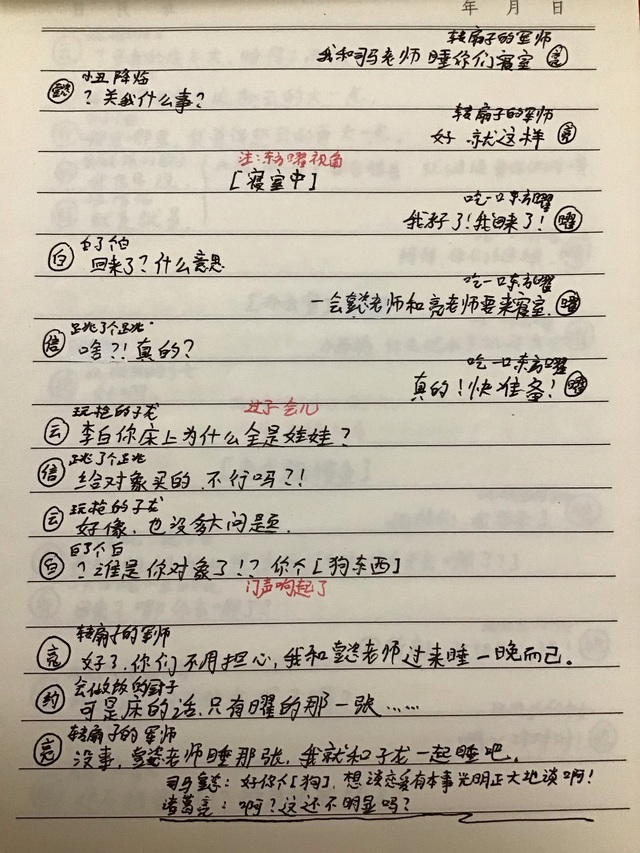 年 月 日
转扇子的军师
我和司马老师睡你们寝室 亮
小丑降临
懿 ? 关我什么事?
转扇子的军师
好 就这样 亮
注:东方曜视角
[寝室中]
吃一口东方曜
我好了!我回来了! 曜
白了个白
白 回来了? 什么意思
吃一口东方曜
一会懿老师和亮老师要来寝室. 曜
跳了个跳
信 啥?! 真的?
吃一口东方曜
真的!快准备! 曜
玩枪的子龙 过了会儿
云 李白你床上为什么全是娃娃?
跳了个跳
信 给对象买的,不行吗?!
玩枪的子龙
云 好像,也没多大问题.
白了个白
白 ? 谁是你对象了!? 你个[狗东西]
门声响起了
转扇子的军师
亮 好了,你们不用担心,我和懿老师过来睡一晚而已。
会做饭的厨子
约 可是床的话,只有曜的那一张……
转扇子的军师
亮 没事,懿老师睡那张,我就和子龙一起睡吧。
司马懿: 好你个[狗],想谈恋爱有本事光明正大地谈啊!
诸葛亮: 啊?这还不明显吗?